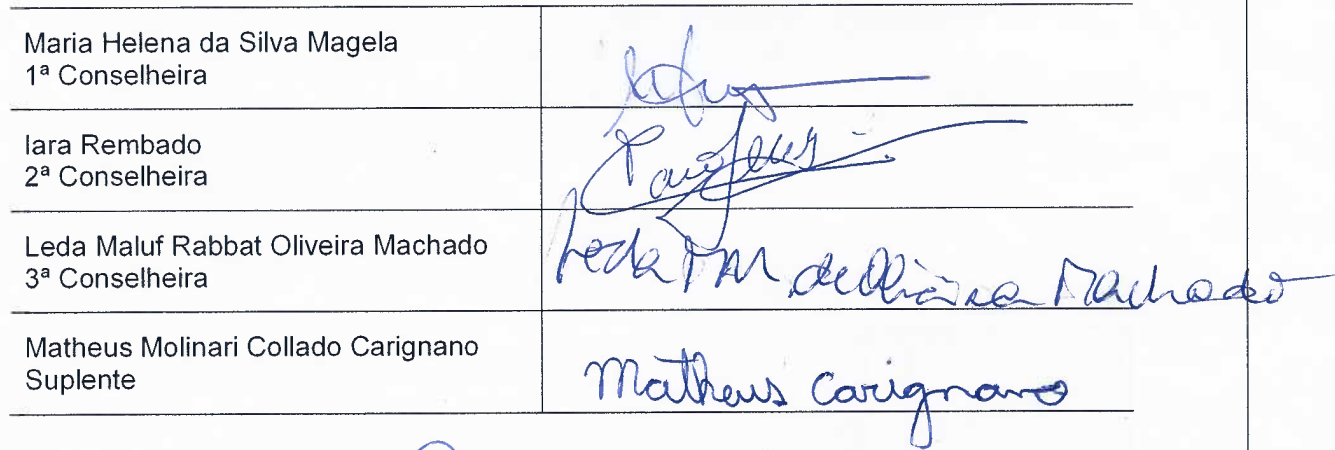 Maria Helena da Silva Magela
1ª Conselheira
Iara Rembado
2ª Conselheira
Leda Maluf Rabbat Oliveira Machado
3ª Conselheira
Leda M de Oliveira Machado
Matheus Molinari Collado Carignano
Suplente
Matheus Carignano